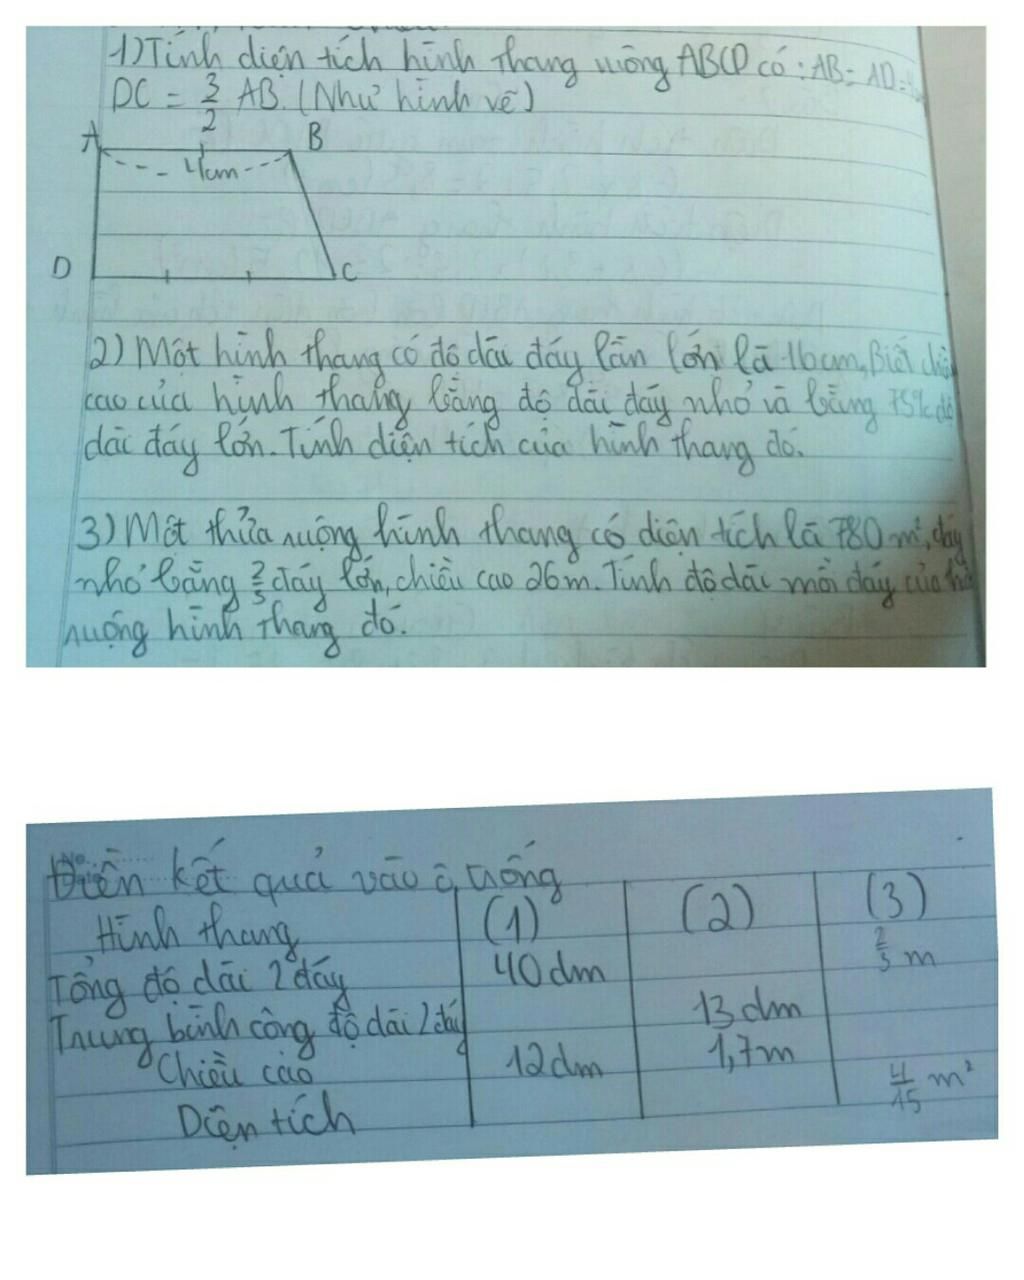 1) Tính diện tích hình thang vuông ABCD có: AB = AD =
DC = 3/2 AB. (Như hình vẽ)
A B
4cm
D C
2) Một hình thang có độ dài đáy lớn là 16cm, Biết chiều
cao của hình thang bằng độ dài đáy nhỏ và bằng 75% độ
dài đáy lớn. Tính diện tích của hình thang đó.
3) Một thửa ruộng hình thang có diện tích là 780 m², đáy
nhỏ bằng đáy lớn, chiều cao 26m. Tính độ dài mỗi đáy của
ruộng hình thang đó.
Điền kết quả vào ô trống
Hình thang (1) (2) (3)
Tổng độ dài 2 đáy 40dm m
Trung bình cộng độ dài 2 đáy 13dm
Chiều cao 12dm 1,7m
Diện tích 4/15 m²